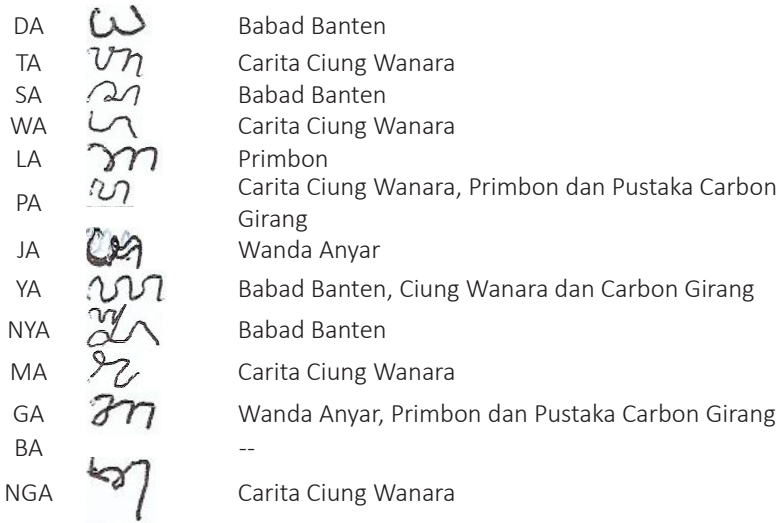 DA Babad Banten
TA Carita Ciung Wanara
SA Babad Banten
WA Carita Ciung Wanara
LA Primbon
PA Carita Ciung Wanara, Primbon dan Pustaka Carbon
Girang
JA Wanda Anyar
YA Babad Banten, Ciung Wanara dan Carbon Girang
NYA Babad Banten
MA Carita Ciung Wanara
GA Wanda Anyar, Primbon dan Pustaka Carbon Girang
BA --
NGA Carita Ciung Wanara